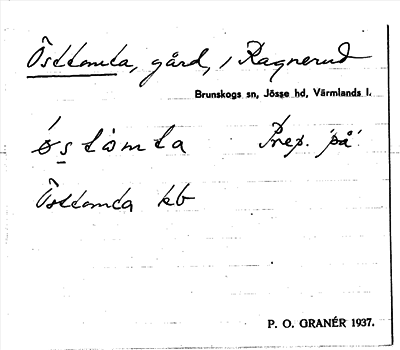 Östtomta, gård, i Ragnerud
Brunskogs sn, Jösse hd, Värmlands l.
östòmta Prep. 'på'
Östtomta kb
P. O. GRANÉR 1937.